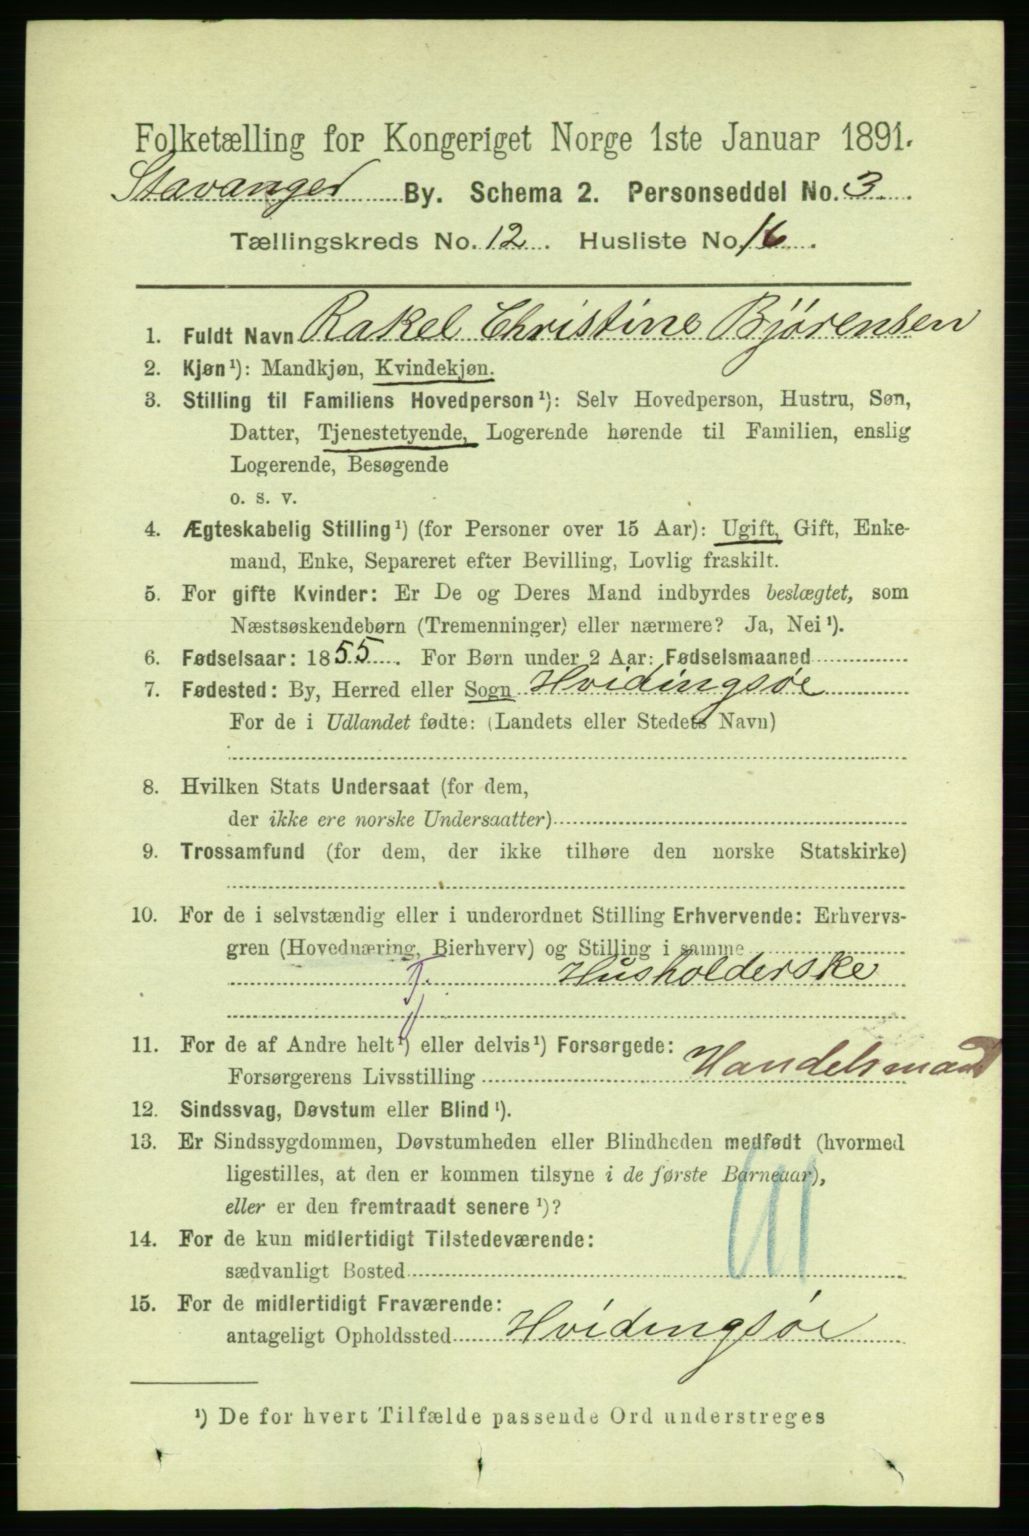 Folketælling for Kongeriget Norge 1ste Januar 1891.
Stavanger By. Schema 2. Personseddel No. 3.
Tællingskreds No. 12. Husliste No. 16.
1. Fuldt Navn Rakel Christine Bjørensen
2. Kjøn¹): Mandkjøn, Kvindekjøn.
3. Stilling til Familiens Hovedperson¹): Selv Hovedperson, Hustru, Søn,
Datter, Tjenestetyende, Logerende hørende til Familien, enslig
Logerende, Besøgende
o. s. v.
4. Ægteskabelig Stilling¹) (for Personer over 15 Aar): Ugift, Gift, Enke-
mand, Enke, Separeret efter Bevilling, Lovlig fraskilt.
5. For gifte Kvinder: Er De og Deres Mand indbyrdes beslægtet, som
Næstsøskendebørn (Tremenninger) eller nærmere? Ja, Nei¹).
6. Fødselsaar: 1855. For Børn under 2 Aar: Fødselsmaaned
7. Fødested: By, Herred eller Sogn Hvidingsøe
For de i Udlandet fødte: (Landets eller Stedets Navn)
8. Hvilken Stats Undersaat (for dem,
der ikke ere norske Undersaatter)
9. Trossamfund (for dem, der ikke tilhøre den norske Statskirke)
10. For de i selvstændig eller i underordnet Stilling Erhvervende: Erhvervs-
gren (Hovednæring, Bierhverv) og Stilling i samme
T. Husholderske
11. For de af Andre helt¹) eller delvis¹) Forsørgede:
Forsørgerens Livsstilling Handelsmand
12. Sindssvag, Døvstum eller Blind¹).
13. Er Sindssygdommen, Døvstumheden eller Blindheden medfødt (hvormed
ligestilles, at den er kommen tilsyne i de første Barneaar),
eller er den fremtraadt senere¹)?
14. For de kun midlertidigt Tilstedeværende:
sædvanligt Bosted
15. For de midlertidigt Fraværende:
antageligt Opholdssted Hvidingsøe
¹) De for hvert Tilfælde passende Ord understreges